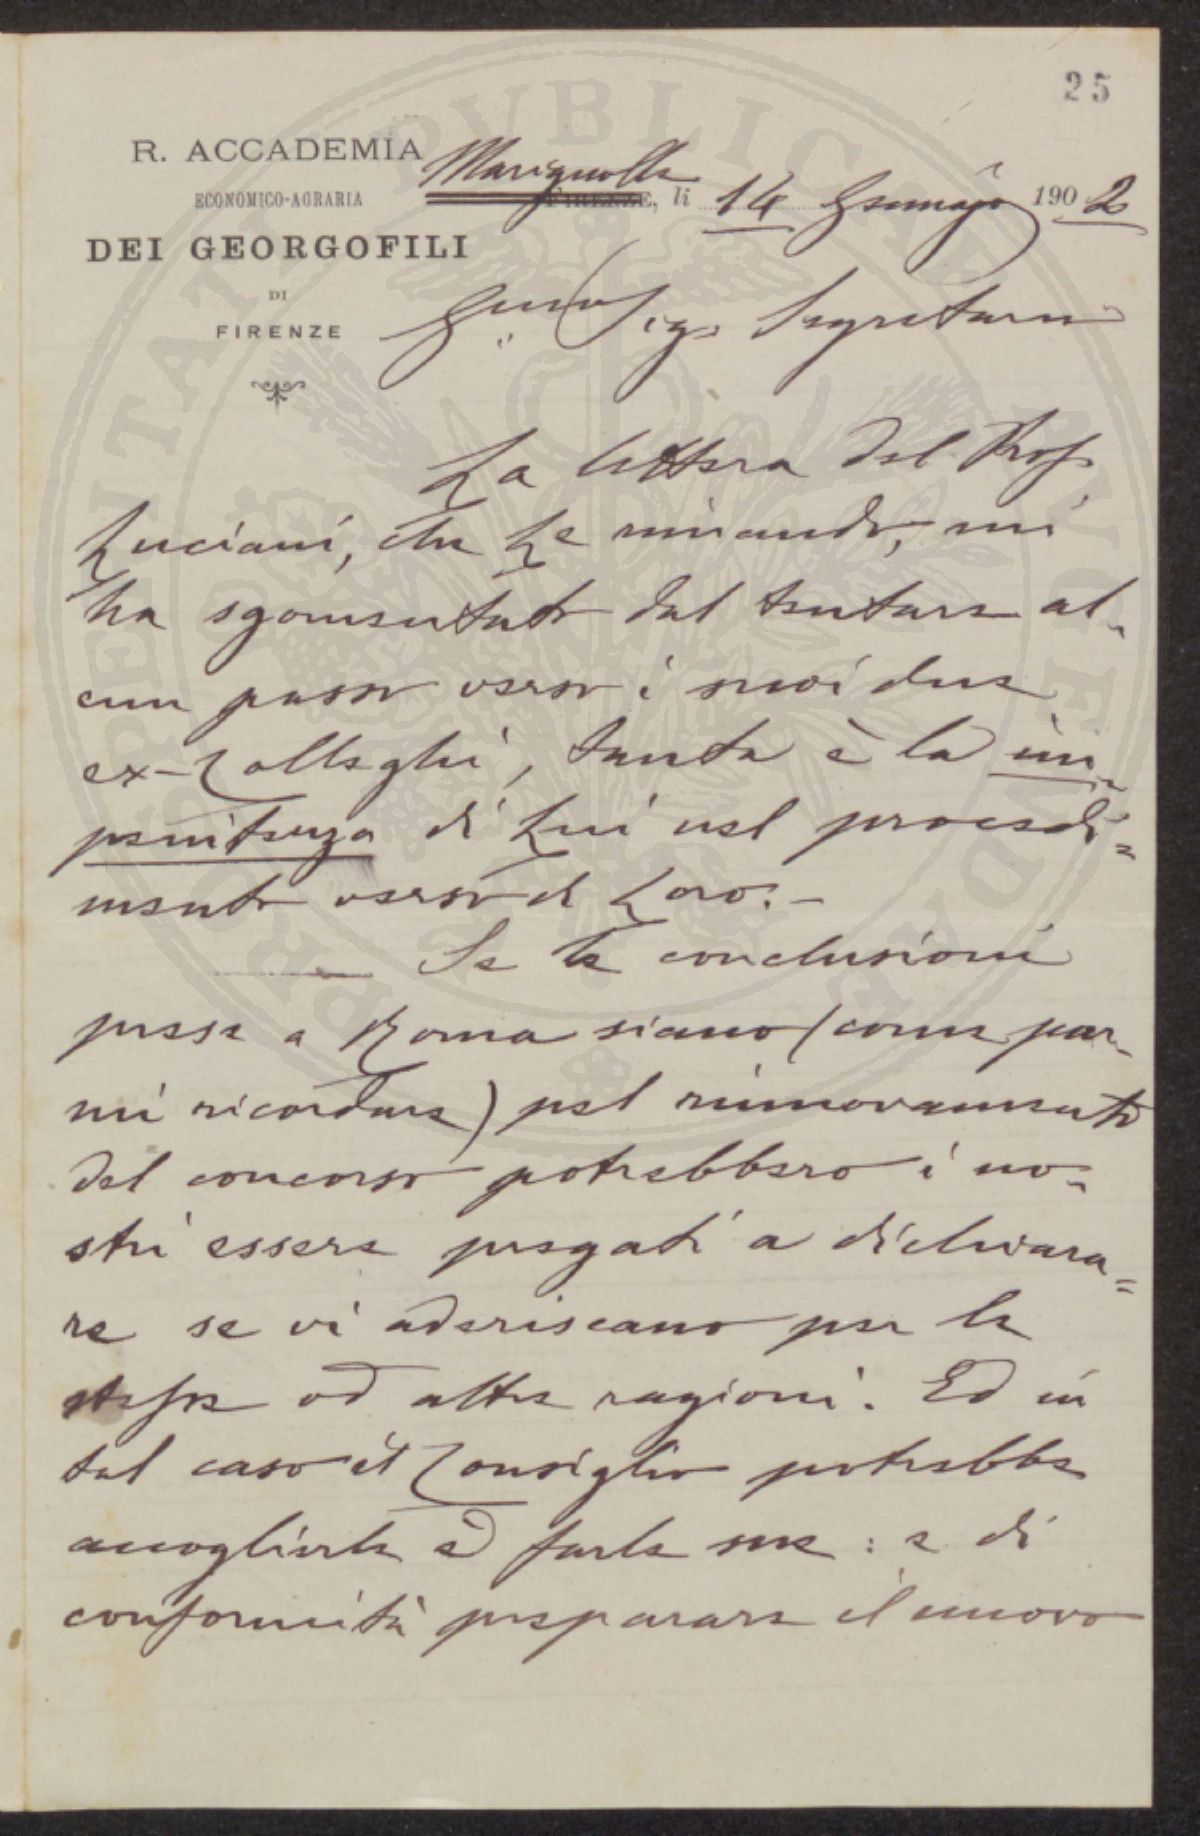 25
R. ACCADEMIA
ECONOMICO-AGRARIA
DEI GEORGOFILI
DI
FIRENZE
Marignolle
FIRENZE, li 14 Gennajo 1902
Sig. Segretario
La lettera del Prof.
Luciani, che Le rimando, mi
ha sgomentato dal tentare al-
cun passo verso i suoi due
ex-Colleghi, tanta è la im-
penitenza di Lui nel procedi=
mento verso di Loro.-
Se le conclusioni
prese a Roma siano (come par-
mi ricordare) pel rinnovamento
del concorso potrebbero i no-
stri essere pregati a dichiara=
re se vi aderiscano per le
stesse od altre ragioni. Ed in
tal caso il Consiglio potrebbe
accoglierle e farle sue: e di
conformità preparare il nuovo